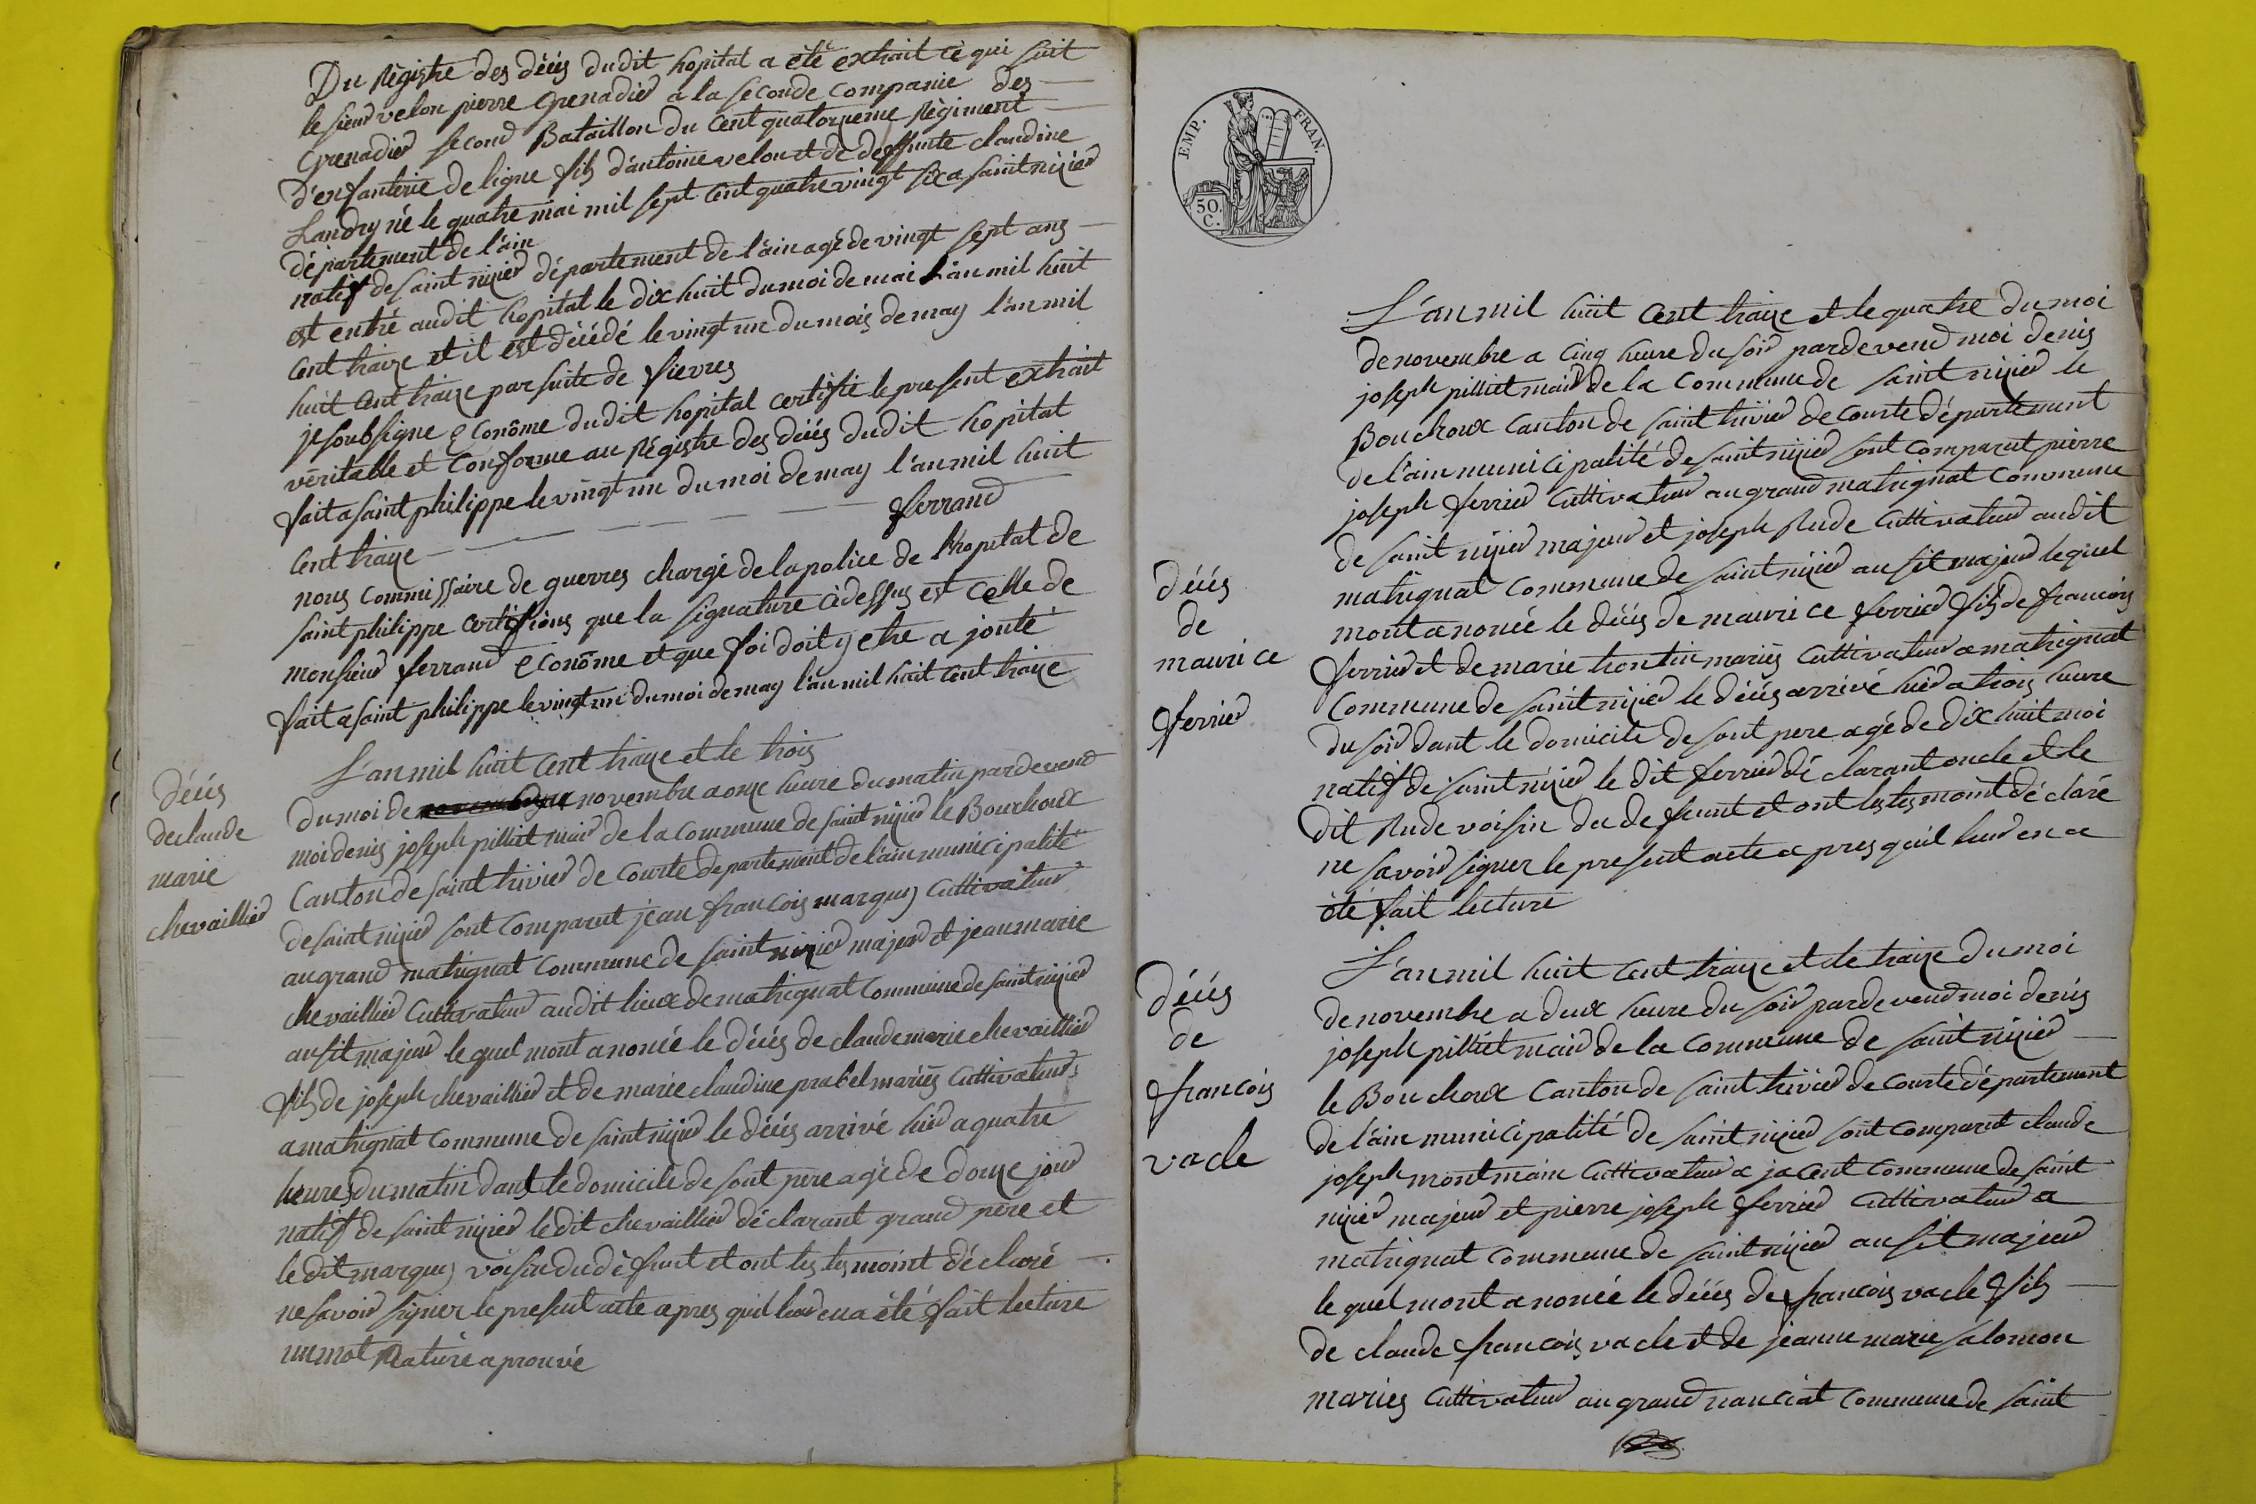 Du Régistre des décés dudit hopital a été extrait ce qui suit
le sieur velon pierre Grenadier a la seconde companie des
Grenadier second Bataillon du Cent quatorzieme Régiment
D'enfanterie de ligne fils d'antoine velon et de deffunte claudine
Landry né le quatre mai mil sept cent quatre vingt six a saint nizier
département de l'ain
natif de saint nizier département de l'ain agé de vingt sept ans
est entré audit hopital le dix huit du moi de mai L'an mil huit
Cent traize et il est décédé le vingt un du mois de may l'an mil
huit Cent traize par suite de fievres
je soubsigne Econôme dudit hopital certifie le present extrait
véritable et Conforme au Régistre des décés dudit hopital
fait a saint philippe le vingt un du moi de may l'an mil huit
Cent traize ferrand
nous Commissaire de guerres chargé de la police de l'hopital de
saint philippe Certifions que la signature cidessus est celle de
monsieur ferrand Econôme et que foi doit y etre a jouté
fait a saint philippe le vingt un du moi de may l'an mil huit Cent traize
décés
de claude
marie
chevaillier
L'an mil huit Cent traize et le trois
du moi de novembre a onze heure du matin pardevend
moi denis joseph pilliet mair de la Commune de saint nizier le Bouchoux
Canton de saint trivier de Courte departement de l'ain municipalité
de saint nizier sont Comparut jean francois marquis Cultivateur
au grand matrignat Commune de saint nizier majeur et jean marie
chevaillier Cultivateur audit lieux de matrignat Commune de saint nizier
ausit majeur lequel mont anoncé le décés de claude marie chevaillier
fils de joseph chevaillier et de marie claudine prabel mariés Cultivateurs
a matrignat Commune de saint nizier le décés arrivé hier a quatre
heures du matin dant le domicile de sont père agé de douze jour
natif de saint nizier le dit chevaillier déclarant grand père et
le dit marquis voisin du défunt et ont les tesmoint déclaré
ne savoir signer le present acte apres quil leur en a été fait lecture
un mot Raturé aprouvé
EMP. FRAN.
50. C.
décés
de
maurice
ferrier
L'an mil huit Cent traize et le quatre du moi
de novembre a Cinq heure du soir pardevend moi denis
joseph pilliet mair de la Commune de saint nizier le
Bouchoux Canton de saint trivier de Courte département
de l'ain municipalité de saint nizier sont Comparut pierre
joseph ferrier Cultivateur au grand matrignat Commune
de saint nizier majeur et joseph Rude Cultivateur audit
matrignat Commune de saint nizier ausit majeur lequel
mont anoncé le décés de maurice ferrier fils de francois
ferrier et de marie trontin mariés Cultivateur a matrignat
Commune de saint nizier le décés arrivé hier a trois heure
du soir dant le domicile de sont pere agé de dix huit moi
natif de saint nizier le dit ferrier déclarant oncle et le
dit Rude voisin du defunt et ont les tesmoint déclaré
ne savoir signer le present acte apres quil leur en a
été fait lecture
décés
de
francois
vacle
L'an mil huit Cent traize et le traize du moi
de novembre a deux heure du soir pardevend moi denis
joseph pilliet mair de la Commune de saint nizier
le Bouchoux Canton de saint trivier de Courte département
de l'ain municipalité de saint nizier sont Comparut claude
joseph montmain Cultivateur a jacent Commune de saint
nizier majeur et pierre joseph ferrier Cultivateur a
matrignat Commune de saint nizier ausit majeur
lequel mont anoncé le décés de francois vacle fils
de claude francois vacle et de jeanne marie salomon
mariés Cultivateur au grand nanciat Commune de saint